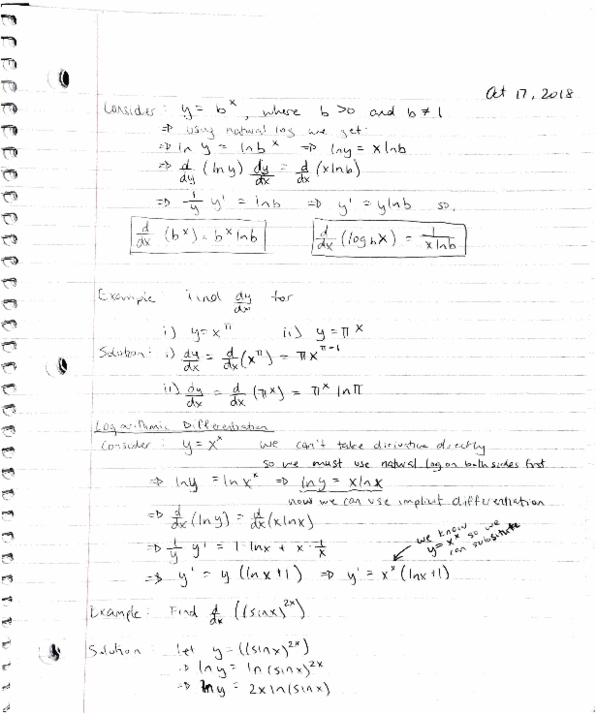 Oct 17, 2018
Consider: y = b^x, where b > 0 and b ≠ 1
⇒ using natural log we get:
⇒ ln y = ln b^x ⇒ ln y = x ln b
⇒ d/dy (ln y) dy/dx = d/dx (x ln b)
⇒ 1/y y' = ln b ⇒ y' = y ln b so,
d/dx (b^x) = b^x ln b d/dx (log_b x) = 1/(x ln b)
Example Find dy/dx for
i) y = x^π ii) y = π^x
Solution: i) dy/dx = d/dx (x^π) = πx^(π-1)
ii) dy/dx = d/dx (π^x) = π^x ln π
Logarithmic Differentiation
Consider: y = x^x we can't take derivative directly
so we must use natural log on both sides first
⇒ ln y = ln x^x ⇒ ln y = x ln x
now we can use implicit differentiation
⇒ d/dx (ln y) = d/dx (x ln x)
⇒ 1/y y' = 1·ln x + x·1/x
we know
y = x^x so we
can substitute
⇒ y' = y (ln x + 1) ⇒ y' = x^x (ln x + 1)
Example: Find d/dx ((sin x)^2x)
Solution: let y = ((sin x)^2x)
⇒ ln y = ln (sin x)^2x
⇒ ln y = 2x ln (sin x)